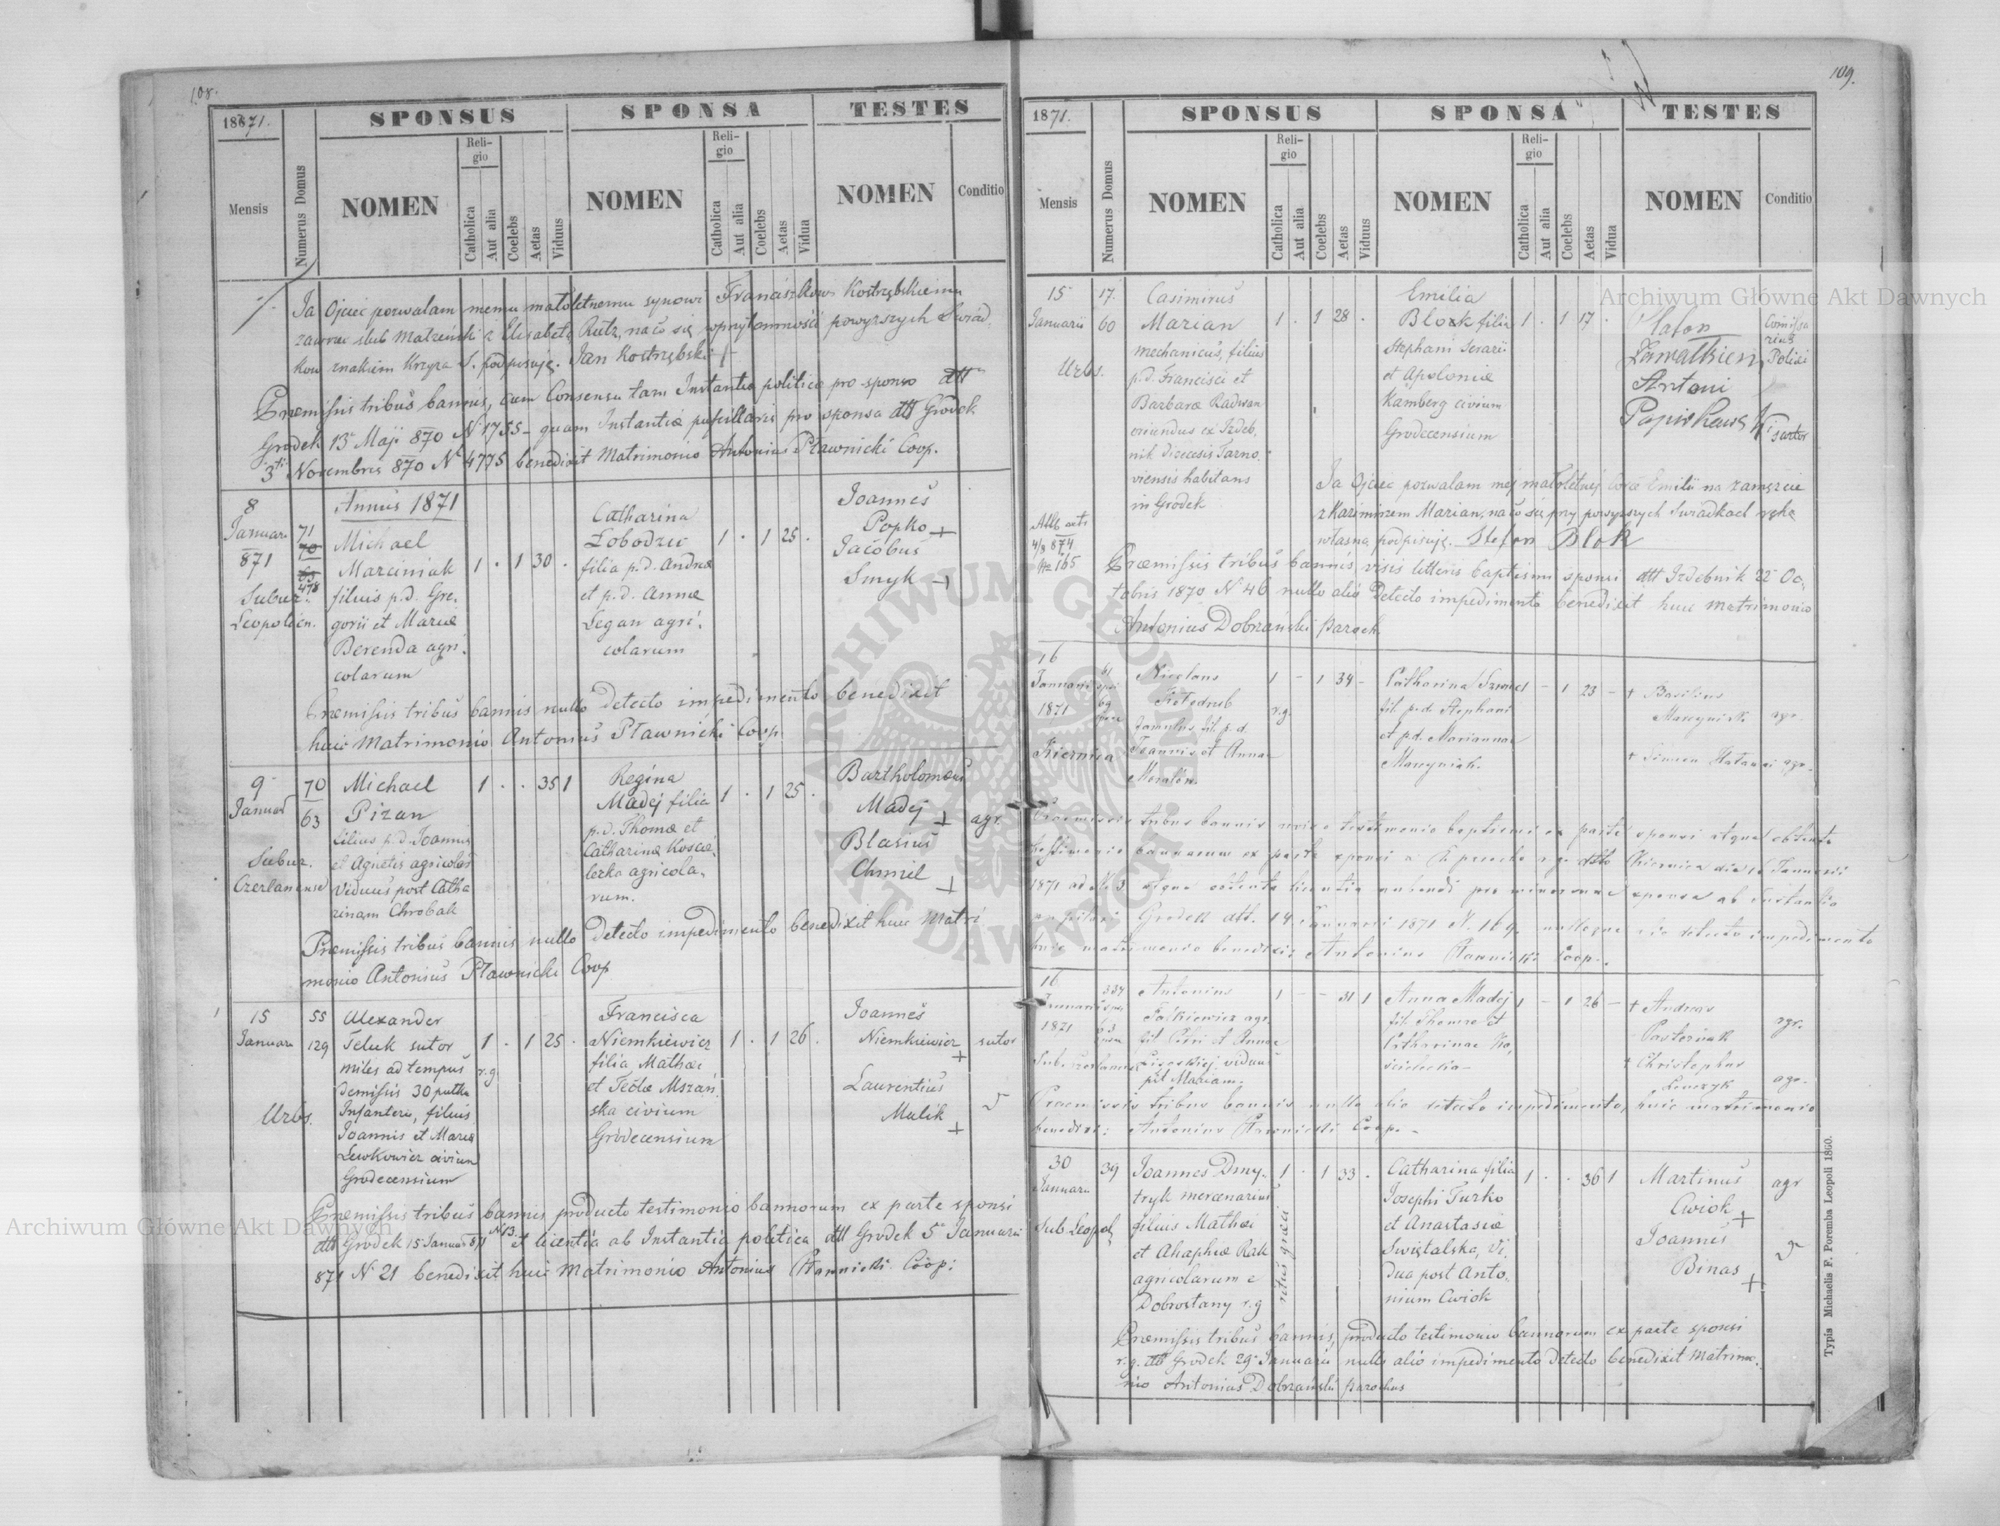 108.
1871.
SPONSUS
SPONSA
TESTES
Mensis
Numerus Domus
NOMEN
Religio
Catholica
Aut alia
Coelebs
Aetas
Viduus
NOMEN
Religio
Catholica
Aut alia
Coelebs
Aetas
Vidua
NOMEN
Conditio
Ja Ojciec pozwalam memu małoletnemu synowi Franciszkowi Kostrzębskiemu
zawrzec slub Małzeński z Elisabetą Rutz, na co się w przytomności powyrszych Swiad
kow znakiem Krzyza S. podpisuję. Jan Kostrzębski +
Præmissis tribus bannis, cum Consensu tam Instantiæ politicæ pro sponso dtt
Grodek 13 Maji 870 N 1755 - quam Instantiæ pupillaris pro sponsa dtt Grodek
3tii Novembris 870 N 4775 benedixit Matrimonio Antonius Pławnicki Coop.
Annus 1871
8
Januar
871
Subur.
Leopolien.
71
70
63
478
Michael
Marciniak
filius p.d. Gre,
gorii et Mariæ
Berenda agri,
colarum
1 . 1 30 .
Catharina
Łobodziec
filia p.d. Andreæ
et p.d. Annæ
Legan agri,
colarum
1 . 1 25 .
Joannes
Popko +
Jacobus
Smyk +
Præmissis tribus bannis nullo detecto impedimento benedixit
huic Matrimonio Antonius Pławnicki Coop
9
Januar
Subur.
Czerlanense
70
63
Michael
Pizan
filius p.d. Joannis
et Agnetis agricolar
Viduus post Catha
rinam Chrobak
1 . . 35 1
Regina
Madej filia
p.d. Thomæ et
Catharinæ Kosciel
lecka agricola,
rum.
1 . 1 25 .
Bartholomæus
Madej +
Blasius
Chmiel +
agr.
Præmissis tribus bannis nullo detecto impedimento benedixit huic Matri
monio Antonius Pławnicki Coop
15
Januar
Urbs.
55
129
Alexander
Teluk sutor
miles ad tempus
demissis 30 pultka
Infanteri, filius
Joannis et Mariæ
Lewkowicz civium
Grodecensium
1 . 1 25 .
r.g
Francisca
Niemkiewicz
filia Mathæi
et Teclæ Mszań,
ska civium
Grodecensium
1 . 1 26 .
Joannes
Niemkiewicz +
Laurentius
Malik +
sutor
Præmissis tribus bannis producto testimonio bannorum ex parte sponsi
dtt Grodek 15 Januar 871 N 13. et licentia ab Instantia politica dtt Grodek 5a Januarii
871 N 21 benedixit huic Matrimonio Antonius Pławnicki Coop:
109.
1871.
SPONSUS
SPONSA
TESTES
Mensis
Numerus Domus
NOMEN
Religio
Catholica
Aut alia
Coelebs
Aetas
Viduus
NOMEN
Religio
Catholica
Aut alia
Coelebs
Aetas
Vidua
NOMEN
Conditio
15
Januarii
Urbs.
17.
60
Casimirus
Marian
mechanicus, filius
p.d. Francisci et
Barbaræ Radwan
oriundus ex Izdeb,
nik Diæcesis Tarno,
viensis habitans
in Grodek
1 . 1 28 .
Emilia
Blok filia
Stephani Serarii
et Apoloniæ
Kamberg civium
Grodecensium
1 . 1 17 .
Antoni
Comissa
rius
Polici
Sartor
Ja Ojciec pozwalam mej małoletnej corce Emilii na zamęzcie
z Kazimirzem Marian, na co się przy powyrszych Swiadkach ręką
własną podpisuję. Stefan Blok
4/8 874
165
Præmissis tribus bannis visis litteris baptismi sponsi dtt Izdebnik 22 Oc,
tobris 1870 N 46 nullo alio detecto impedimento benedixit huic Matrimonio
Antonius Dobrzański Paroch.
16
Januarii
1871
Kiernica
Nicolaus
famulus fil. p.d.
Joannis et Annæ
1 - 1 34 -
r.g.
Catharina
fil. p.d. Stephani
et p.d. Mariannæ
Marcyniak.
1 - 1 23 -
+ Basilius
agr.
+ Simeon
agr.
Praemissis tribus bannis viso testimonio baptismi ex parte sponsi atque obtento
testimonio bannorum ex parte sponsi a parocho r.g. dtto Kiernica die 16 Januarii
1871 ad N 3 atque obtenta licentia nubendi pro minorenne sponsa ab instantia
pupillari Grodek dtt. 14. Januarii 1871 N. 169. nulloque alio detecto impedimento
huic matrimonio benedixit Antonius Pławnicki Coop.
16
Januarii
1871
334
63
Antonius
Falkiewicz agr.
fil. Petri et Annæ
viduus
pst Mariam.
1 - - 31 1
Anna Madej
fil. Thomae et
Catharinae Ko,
scielecka
1 - 1 26 -
+ Andreas
Pasternak
agr.
+ Christophor
agr.
Praemissis tribus bannis nullo alio detecto impedimento, huic matrimonio
benedixi: Antonius Pławnicki Coop.
30
Januarii
Sub. Leopol,
39
Joannes Dmy,
tryk mercenarius
filius Mathæi
et Ahaphiæ Rak
agricolarum e
Dobrostany r.g
1 . 1 33 .
ritus græci
Catharina filia
Josephi Turko
et Anastasiæ
Swiętalska, Vi,
dua post Anto,
nium Cwiok
1 . . 36 1
Martinus
Cwiok +
agr
Joannes
Binas +
Præmissis tribus bannis, producto testimonio bannorum ex parte sponsi
r.g. dtt Grodek 29 Januarii nullo alio impedimento detecto benedixit Matrimo,
nio Antonius Dobrzański parochus
Typis Michaelis F. Poremba Leopoli 1860.
Archiwum Główne Akt Dawnych
Archiwum Główne Akt Dawnych
ARCHIWUM GŁÓWNE AKT DAWNYCH